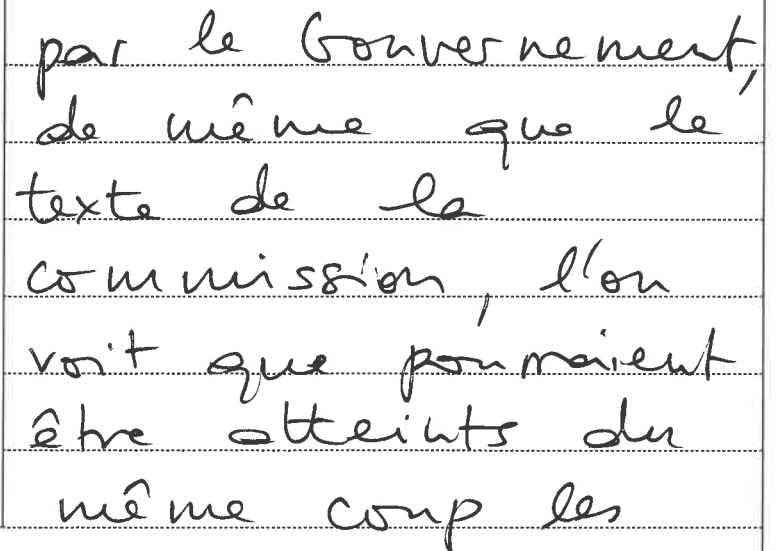 par le Gouvernement,
de même que le
texte de la
commission, l'on
voit que pourraient
être atteints du
même coup les